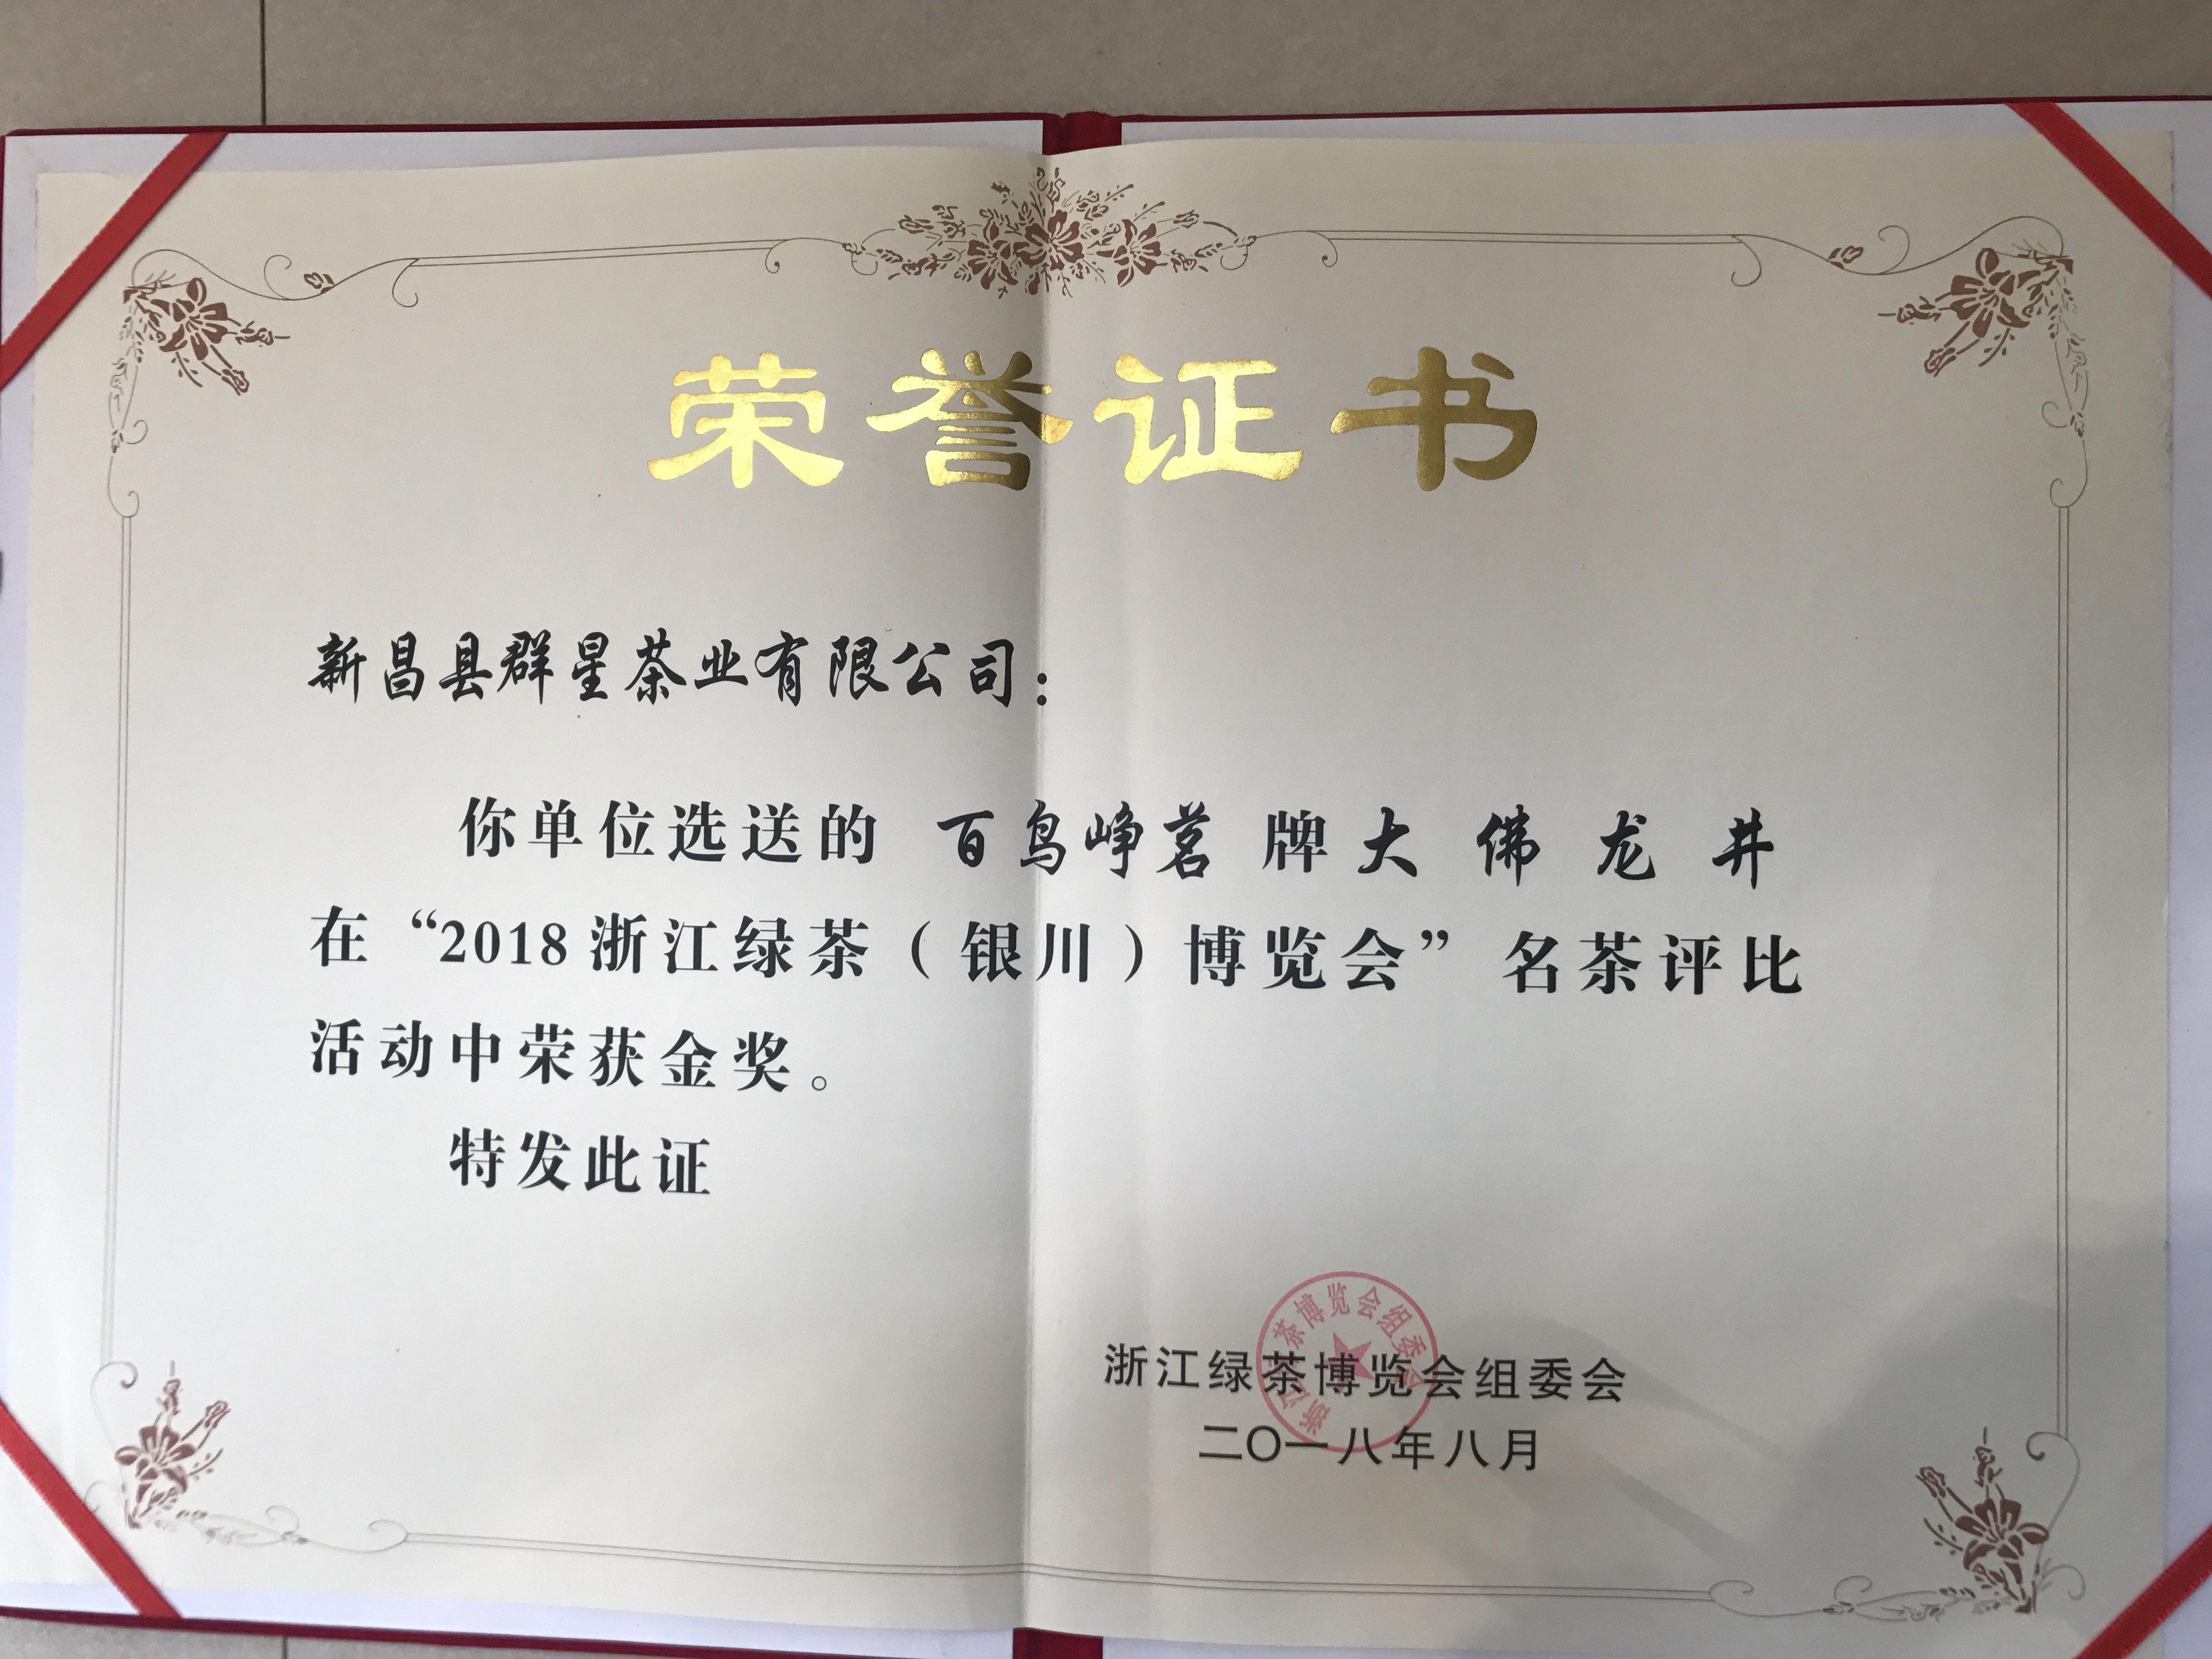 荣誉证书
新昌县群星茶业有限公司：
你单位选送的 百鸟峥茗 牌大佛龙井
在“2018浙江绿茶（银川）博览会”名茶评比
活动中荣获金奖。
特发此证
浙江绿茶博览会组委会
浙江绿茶博览会组委会
二〇一八年八月